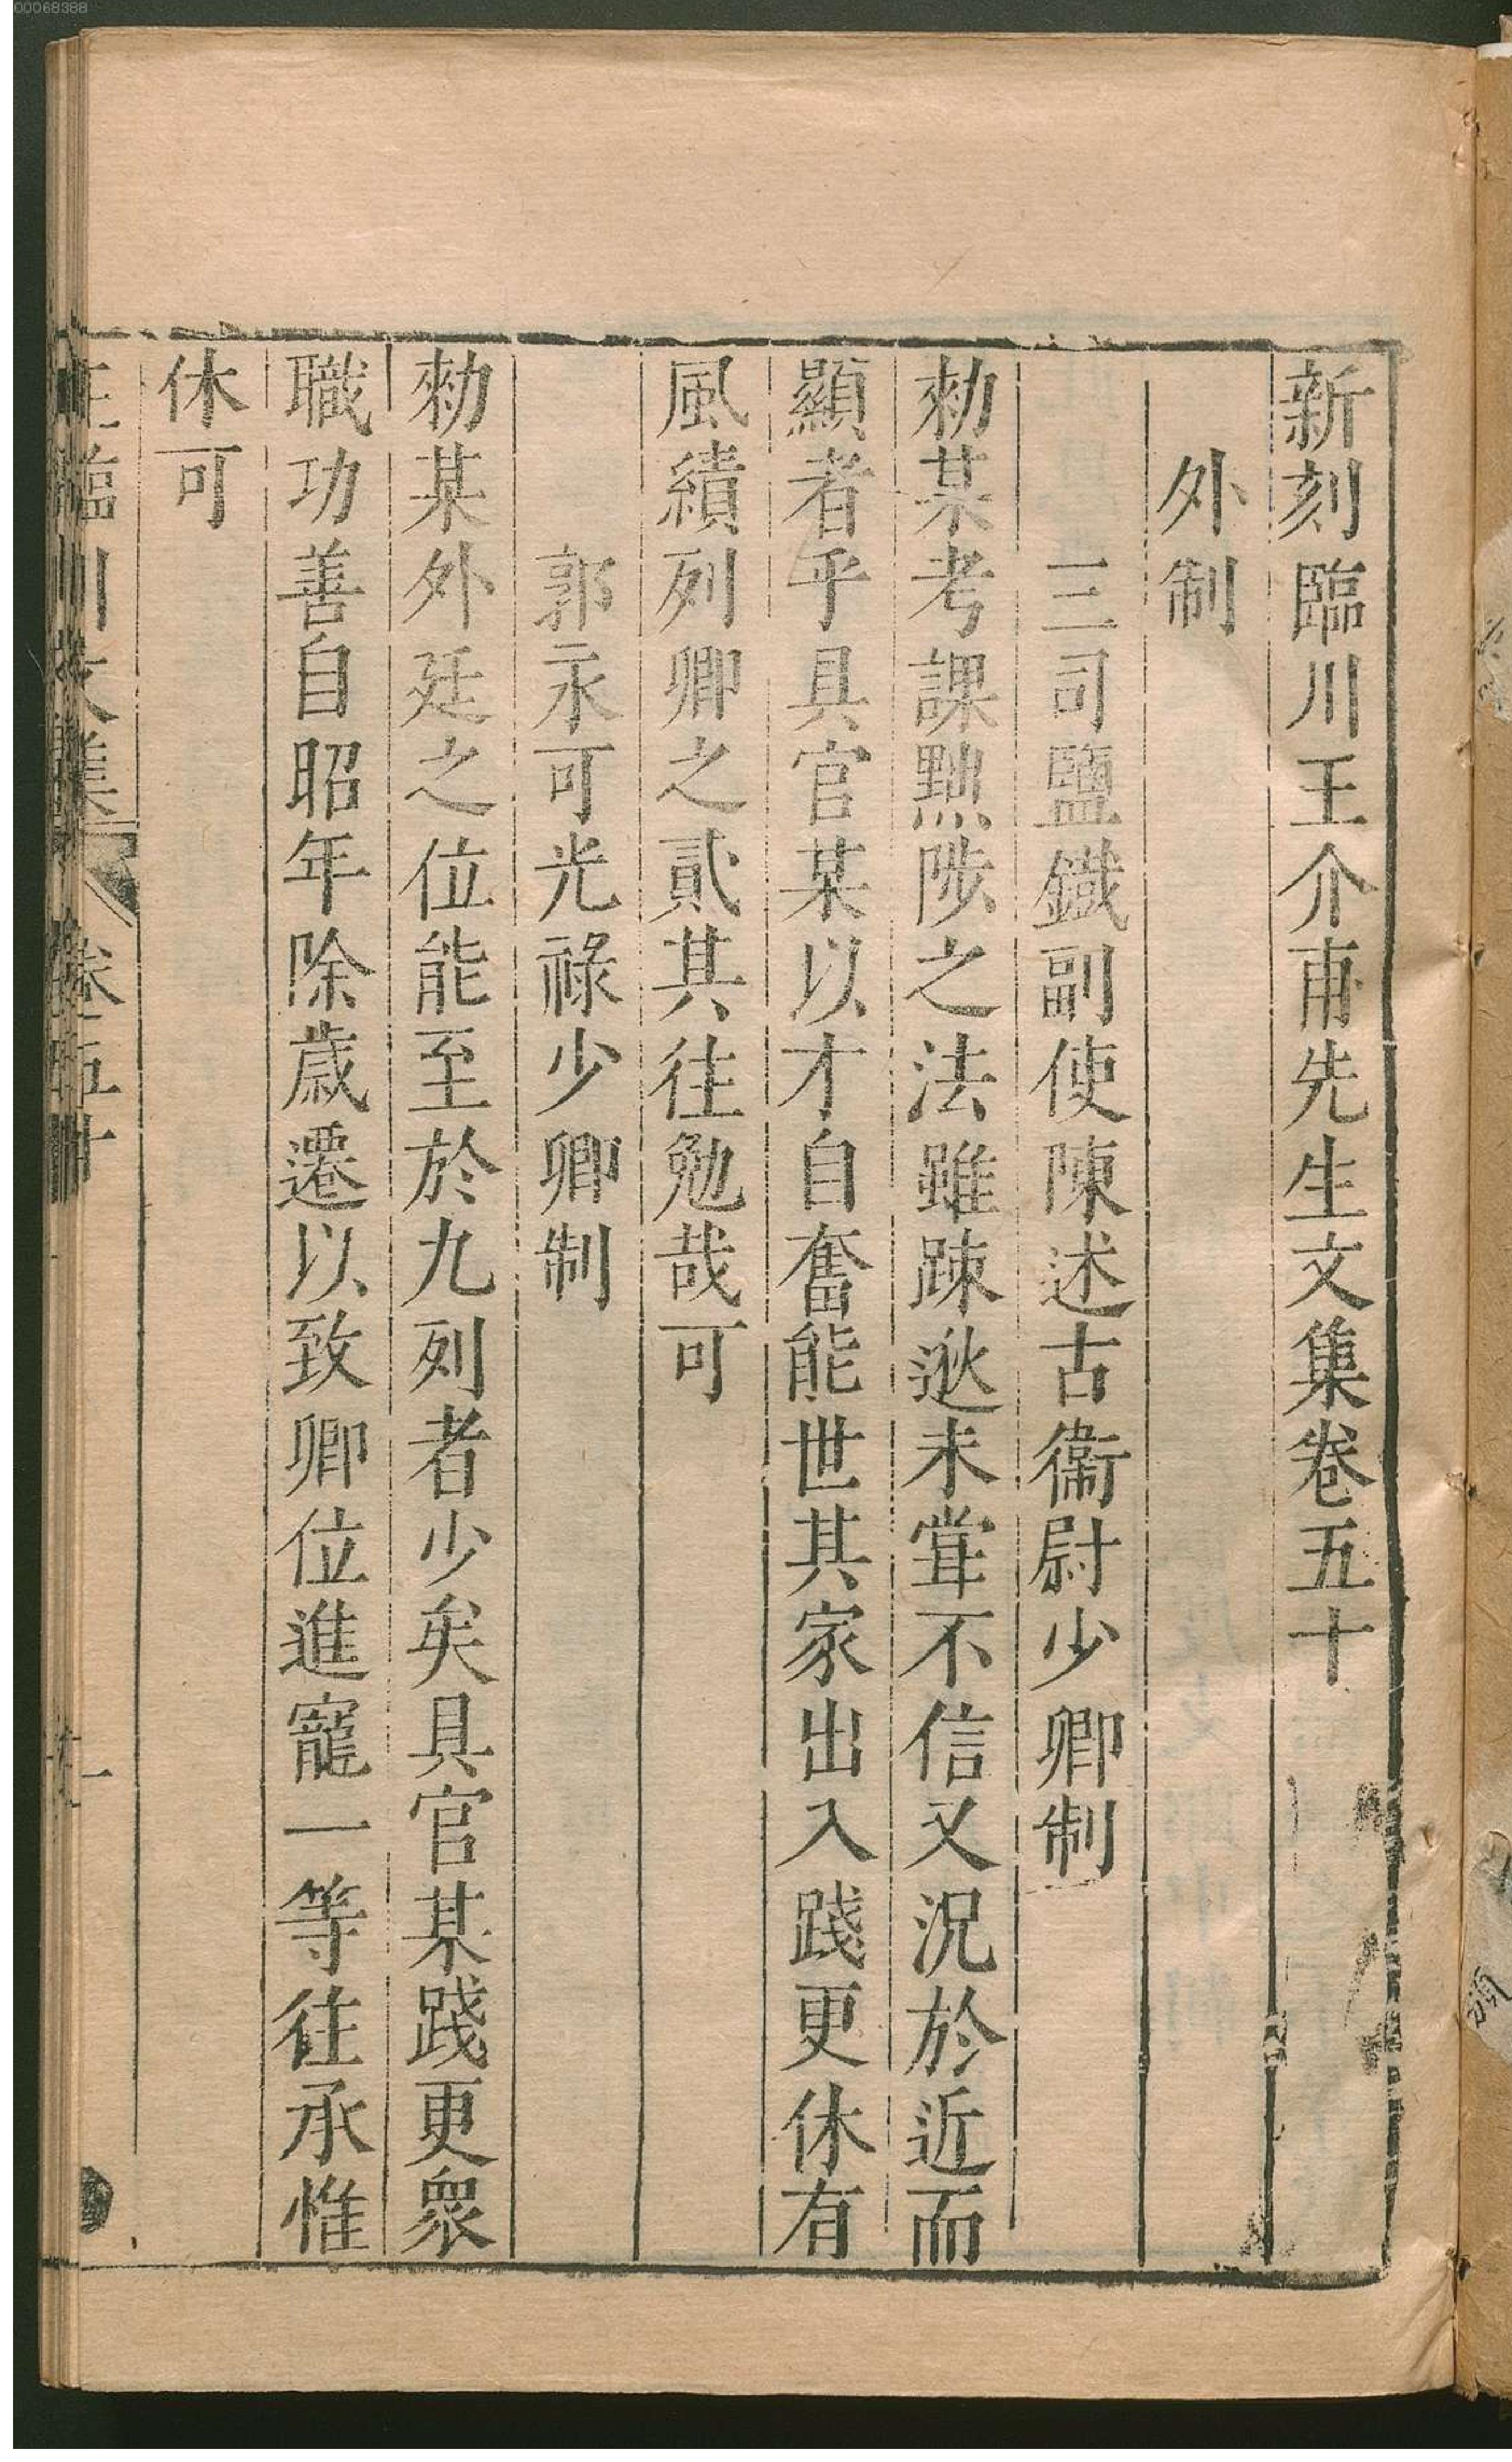 新刻臨川王介甫先生文集卷五十
外制
三司鹽鐵副使陳述古衞尉少卿制
勑某考課黜陟之法雖踈逖未甞不信又況於近而
顯者乎具官某以才自奮能世其家出入踐更休有
風績列卿之貳其往勉哉可
郭永可光祿少卿制
勑某外廷之位能至於九列者少矣具官某踐更衆
職功善自昭年除歲遷以致卿位進寵一等往承惟
休可
王臨川文集 卷五十 一
00068388